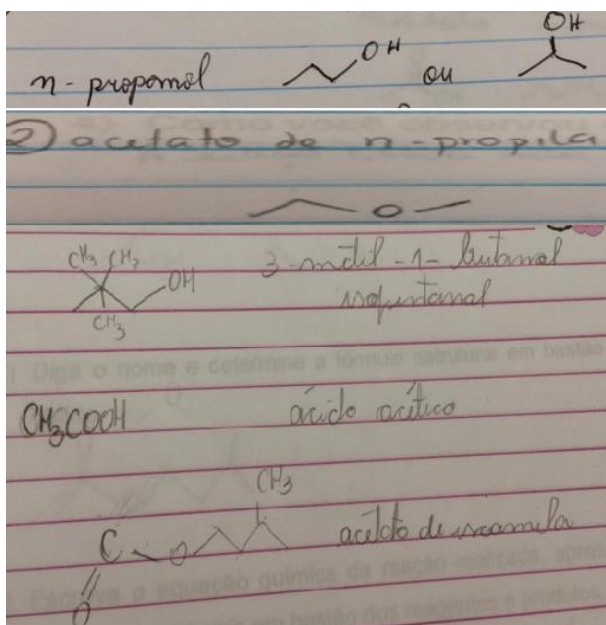 OH OH
n-propanol ou
2) acetato de n-propila
O
CH3 CH3 OH 3-metil-1-butanol
CH3 isopentanol
Diga o nome e determine a fórmula estrutural em bastão
CH3COOH ácido acético
CH3
C O acetato de isoamila
O
Escreva a equação química da reação realizada, apres
em bastão dos reagentes e produtos